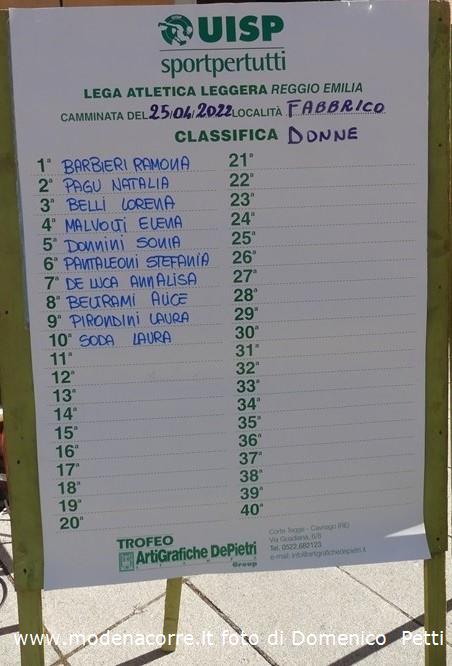 UISP
sportpertutti
LEGA ATLETICA LEGGERA REGGIO EMILIA
CAMMINATA DEL 25/04/2022 LOCALITÀ FABBRICO
CLASSIFICA DONNE
1ª BARBIERI RAMONA
2ª PAGU NATALIA
3ª BELLI LORENA
4ª MALVOLTI ELENA
5ª DONNINI SONIA
6ª PANTALEONI STEFANIA
7ª DE LUCA ANNALISA
8ª BELTRAMI ALICE
9ª PIRONDINI LAURA
10ª SODA LAURA
11ª
12ª
13ª
14ª
15ª
16ª
17ª
18ª
19ª
20ª
21ª
22ª
23ª
24ª
25ª
26ª
27ª
28ª
29ª
30ª
31ª
32ª
33ª
34ª
35ª
36ª
37ª
38ª
39ª
40ª
TROFEO
ArtiGrafiche DePietri
Group
Corte Tegge - Cavriago (RE)
Via Guadiana, 6/8
Tel. 0522.682123
e-mail: info@artigrafichedepietri.it
www.modenacorre.it foto di Domenico Petti